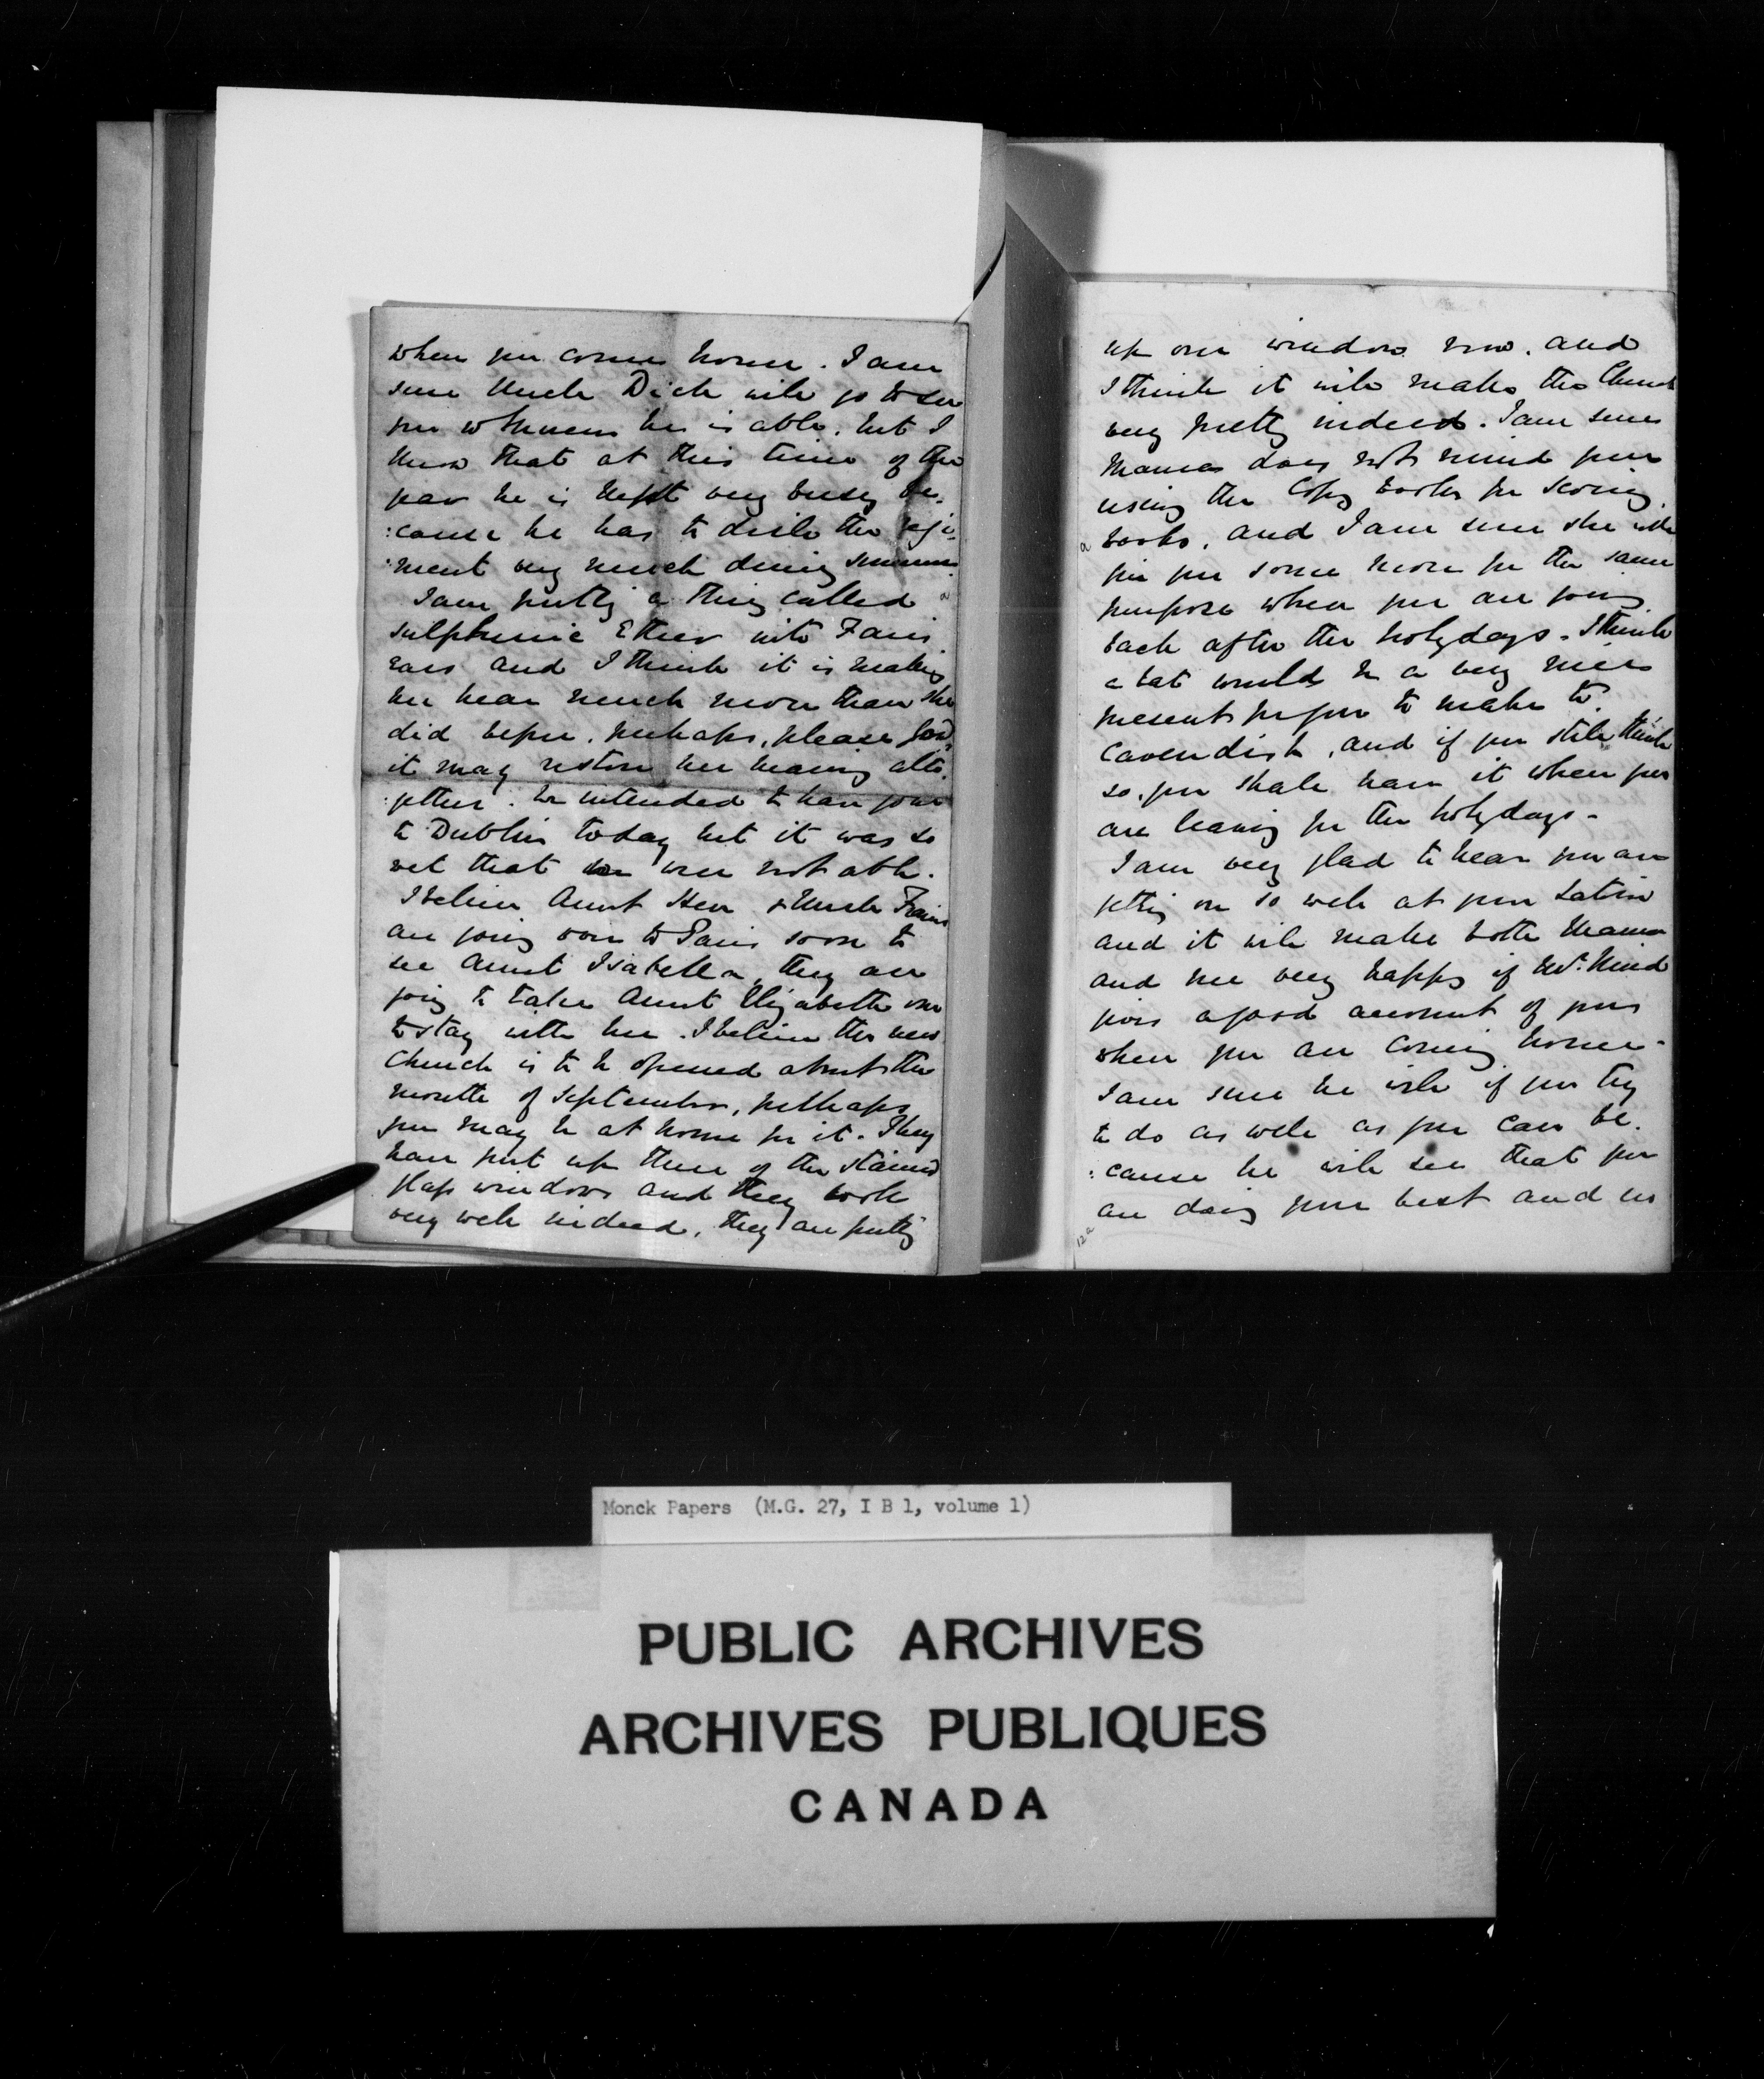 when you come home. I am
sure Uncle Dick will go to see
you whenever he is able, but I
know that at this time of the
year he is kept very busy be:
:cause he has to drill the regi:
:ment very much during summer.
I am putting a thing called
sulphuric Ether into Fan's
ears and I think it is making
her hear much more than she
did before, perhaps, please God,
it may restore her hearing alto:
:gether. We intended to have gone
to Dublin today but it was so
wet that we were not able.
I believe Aunt Hen & Uncle Francis
are going over to Paris soon to
see Aunt Isabella, they are
going to take Aunt Elizabeth over
to stay with her. I believe the new
Church is to be opened about the
month of September, perhaps
you may be at home for it. They
have put up three of the stained
glass windows and they look
very well indeed, they are putting
up one window now. and
I think it will make the Church
very pretty indeed. I am sure
Mama does not mind your
using the Copy books for scoring
books, and I am sure she will
give you some more for the same
purpose when you are going
back after the holydays. I think
a bat would be a very nice
present for you to make to
Cavendish, and if you still think
so, you shall have it when you
are leaving for the holydays -
I am very glad to hear you are
getting on so well at your Latin
and it will make both Mama
and me very happy if Mr. Hind
gives a good account of you
when you are coming home -
I am sure he will if you try
to do as well as you can be:
:cause he will see that you
are doing your best and no
12a
Monck Papers (M.G. 27, I B 1, volume 1)
PUBLIC ARCHIVES
ARCHIVES PUBLIQUES
CANADA